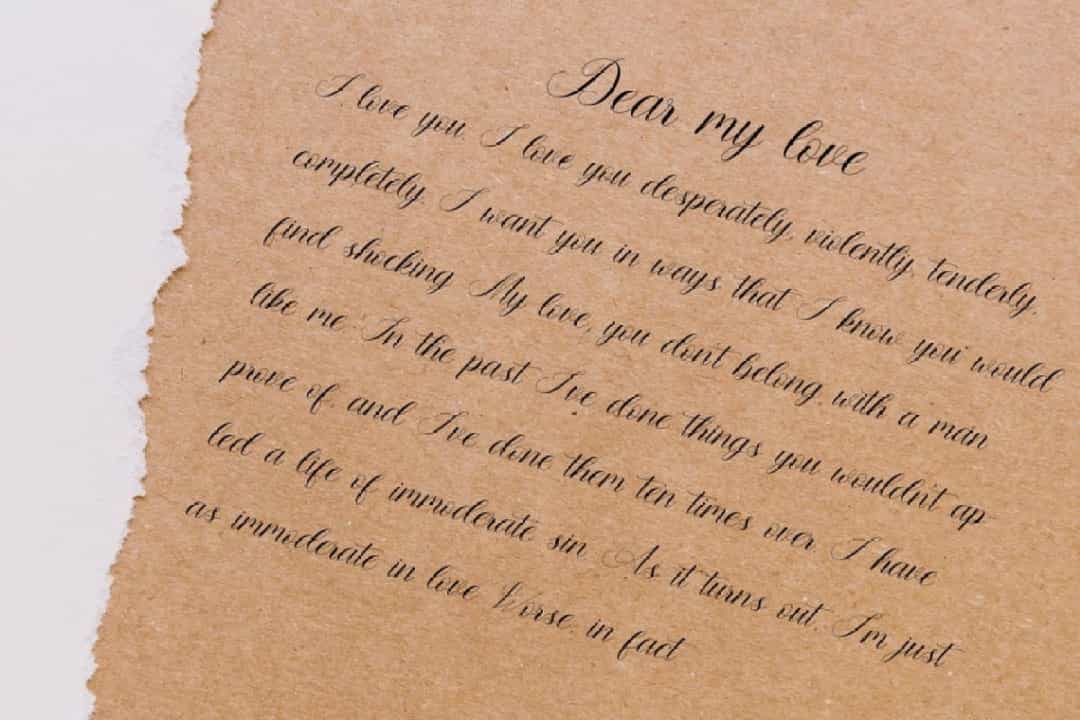 Dear my love
I love you. I love you desperately, violently, tenderly,
completely. I want you in ways that I know you would
find shocking. My love, you don't belong with a man
like me. In the past I've done things you wouldn't ap-
prove of, and I've done them ten times over. I have
led a life of immoderate sin. As it turns out, I'm just
as immoderate in love. Worse, in fact